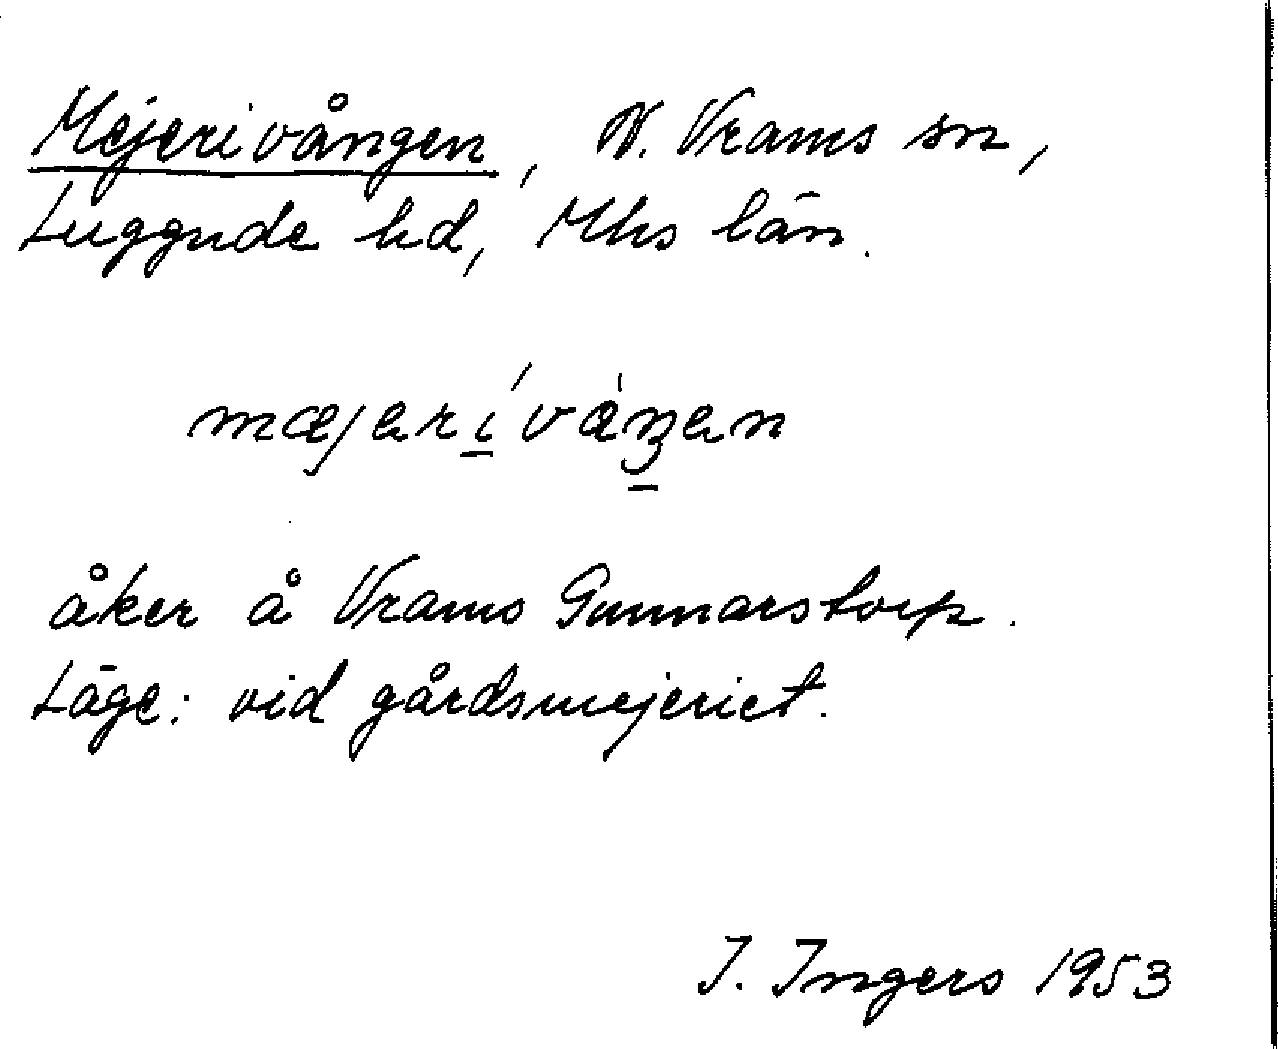 Mejerivången, N. Vrams sn,
Luggude hd, Mhs län.
mæjerívàŋen
åker å Vrams Gunnarstorp.
Läge: vid gårdsmejeriet.
I. Ingers 1953